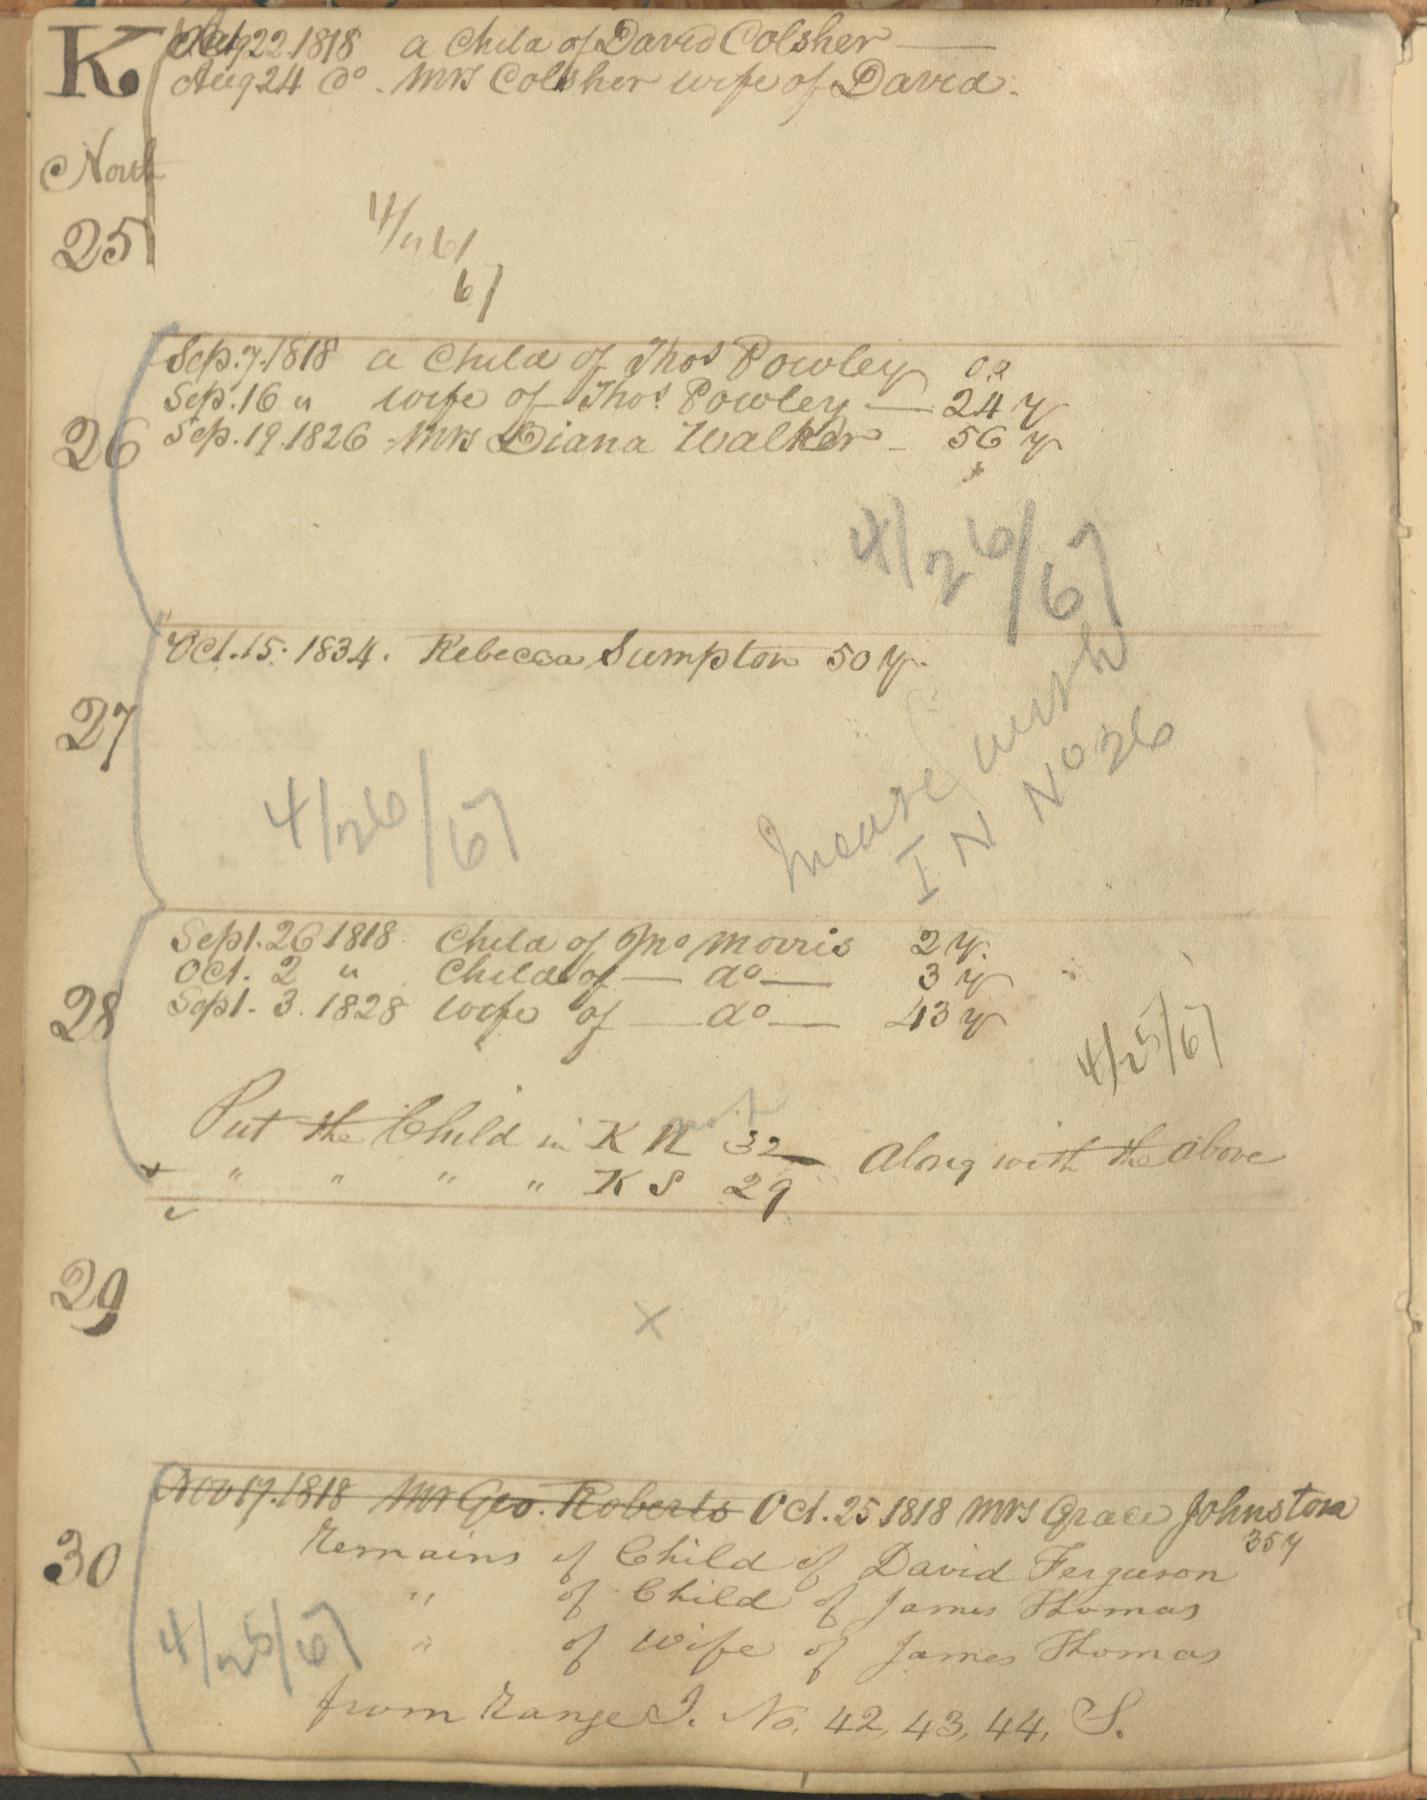 K Aug 22. 1818 a Child of David Colsher
Aug 24 do. Mrs Colsher wife of David.
North
25
4/11 61
67
Sep. 7. 1818 a Child of Thos Powley
Sep. 16 " wife of Thos. Powley — 24 y
26 Sep. 19. 1826 - Mrs Diana Walker - 56 y
4/26/67
Oct. 15. 1834. Rebecca Sumpton 50 y.
27
with
IN No 26
4/26/67
Sept. 26 1818. Child of Jno Morris 2 y.
Oct. 2 " Child of — do — 3 y
28 Sept. 3. 1828 wife of — do — 43 y
4/25/67
not
Put the Child in K N 32 Along with the above
" " " " K S 29
29
X
Nov 17. 1818 Mr Geo. Roberts Oct. 25 1818 Mrs Grace Johnston
35 y
30 Remains of Child of David Ferguson
" of Child of James Thomas
4/25/67 " of Wife of James Thomas
from Range I. No. 42, 43, 44, S.